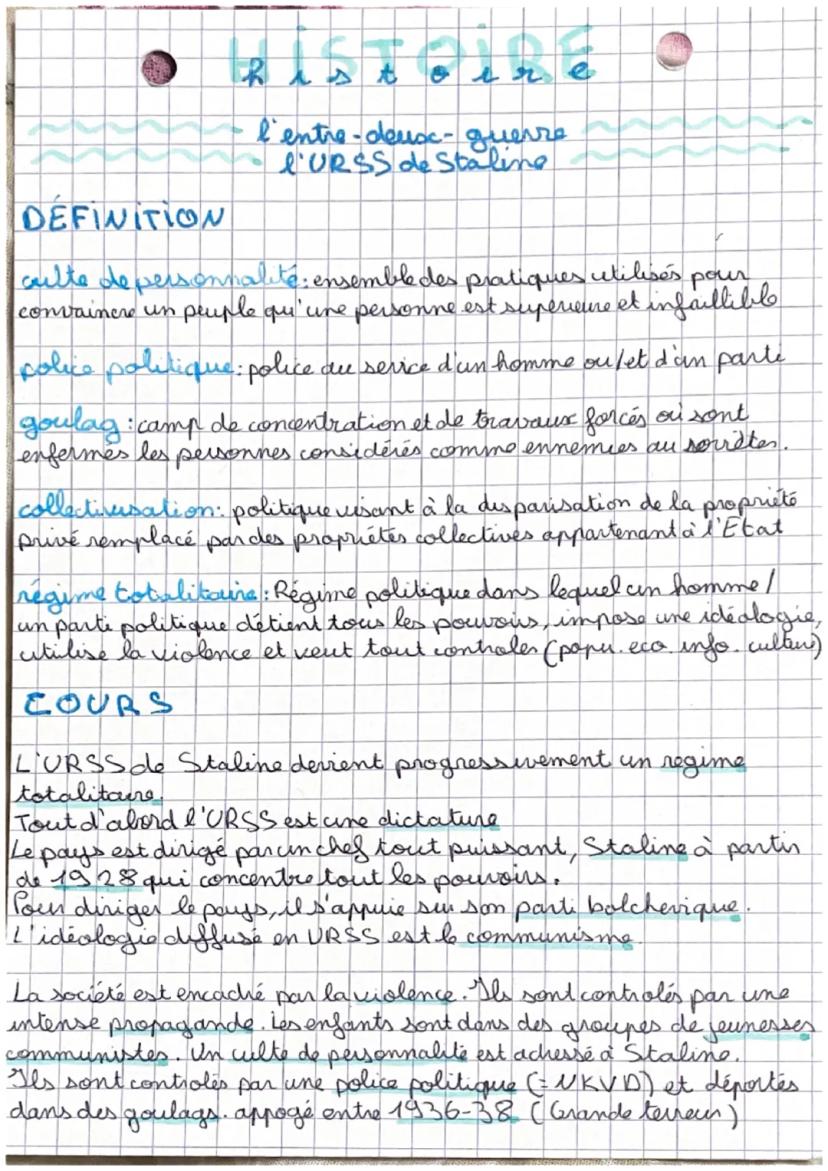 HISTOIRE
histoire
l'entre-deux-guerre
l'URSS de Staline
DÉFINITION
culte de personnalité: ensemble des pratiques utilisés pour
convaincre un peuple qu'une personne est superieure et infaillible
police politique: police au service d'un homme ou/et d'un parti
goulag: camp de concentration et de travaux forcés où sont
enfermés les personnes considérés comme ennemies au soviètes.
collectivisation: politique visant à la disparisation de la propriété
privé remplacé par des propriétés collectives appartenant à l'État
régime totalitaire: Régime politique dans lequel un homme/
un parti politique détient tous les pouvoirs, impose une idéologie,
utilise la violence et veut tout controler (popu. eco. info. culture)
COURS
L'URSS de Staline devient progressivement un regime
totalitaire.
Tout d'abord l'URSS est une dictature
Le pays est dirigé par un chef tout puissant, Staline à partir
de 1928 qui concentre tout les pouvoirs.
Pour diriger le pays, il s'appuie sur son parti bolchevique.
L'idéologie diffusé en URSS est le communisme
La société est encadré par la violence. Ils sont controlés par une
intense propagande. Les enfants sont dans des groupes de jeunesses
communistes. Un culte de personnalité est adressé à Staline.
Ils sont controlés par une police politique (= NKVD) et déportés
dans des goulags. appogé entre 1936-38 (Grande terreur)